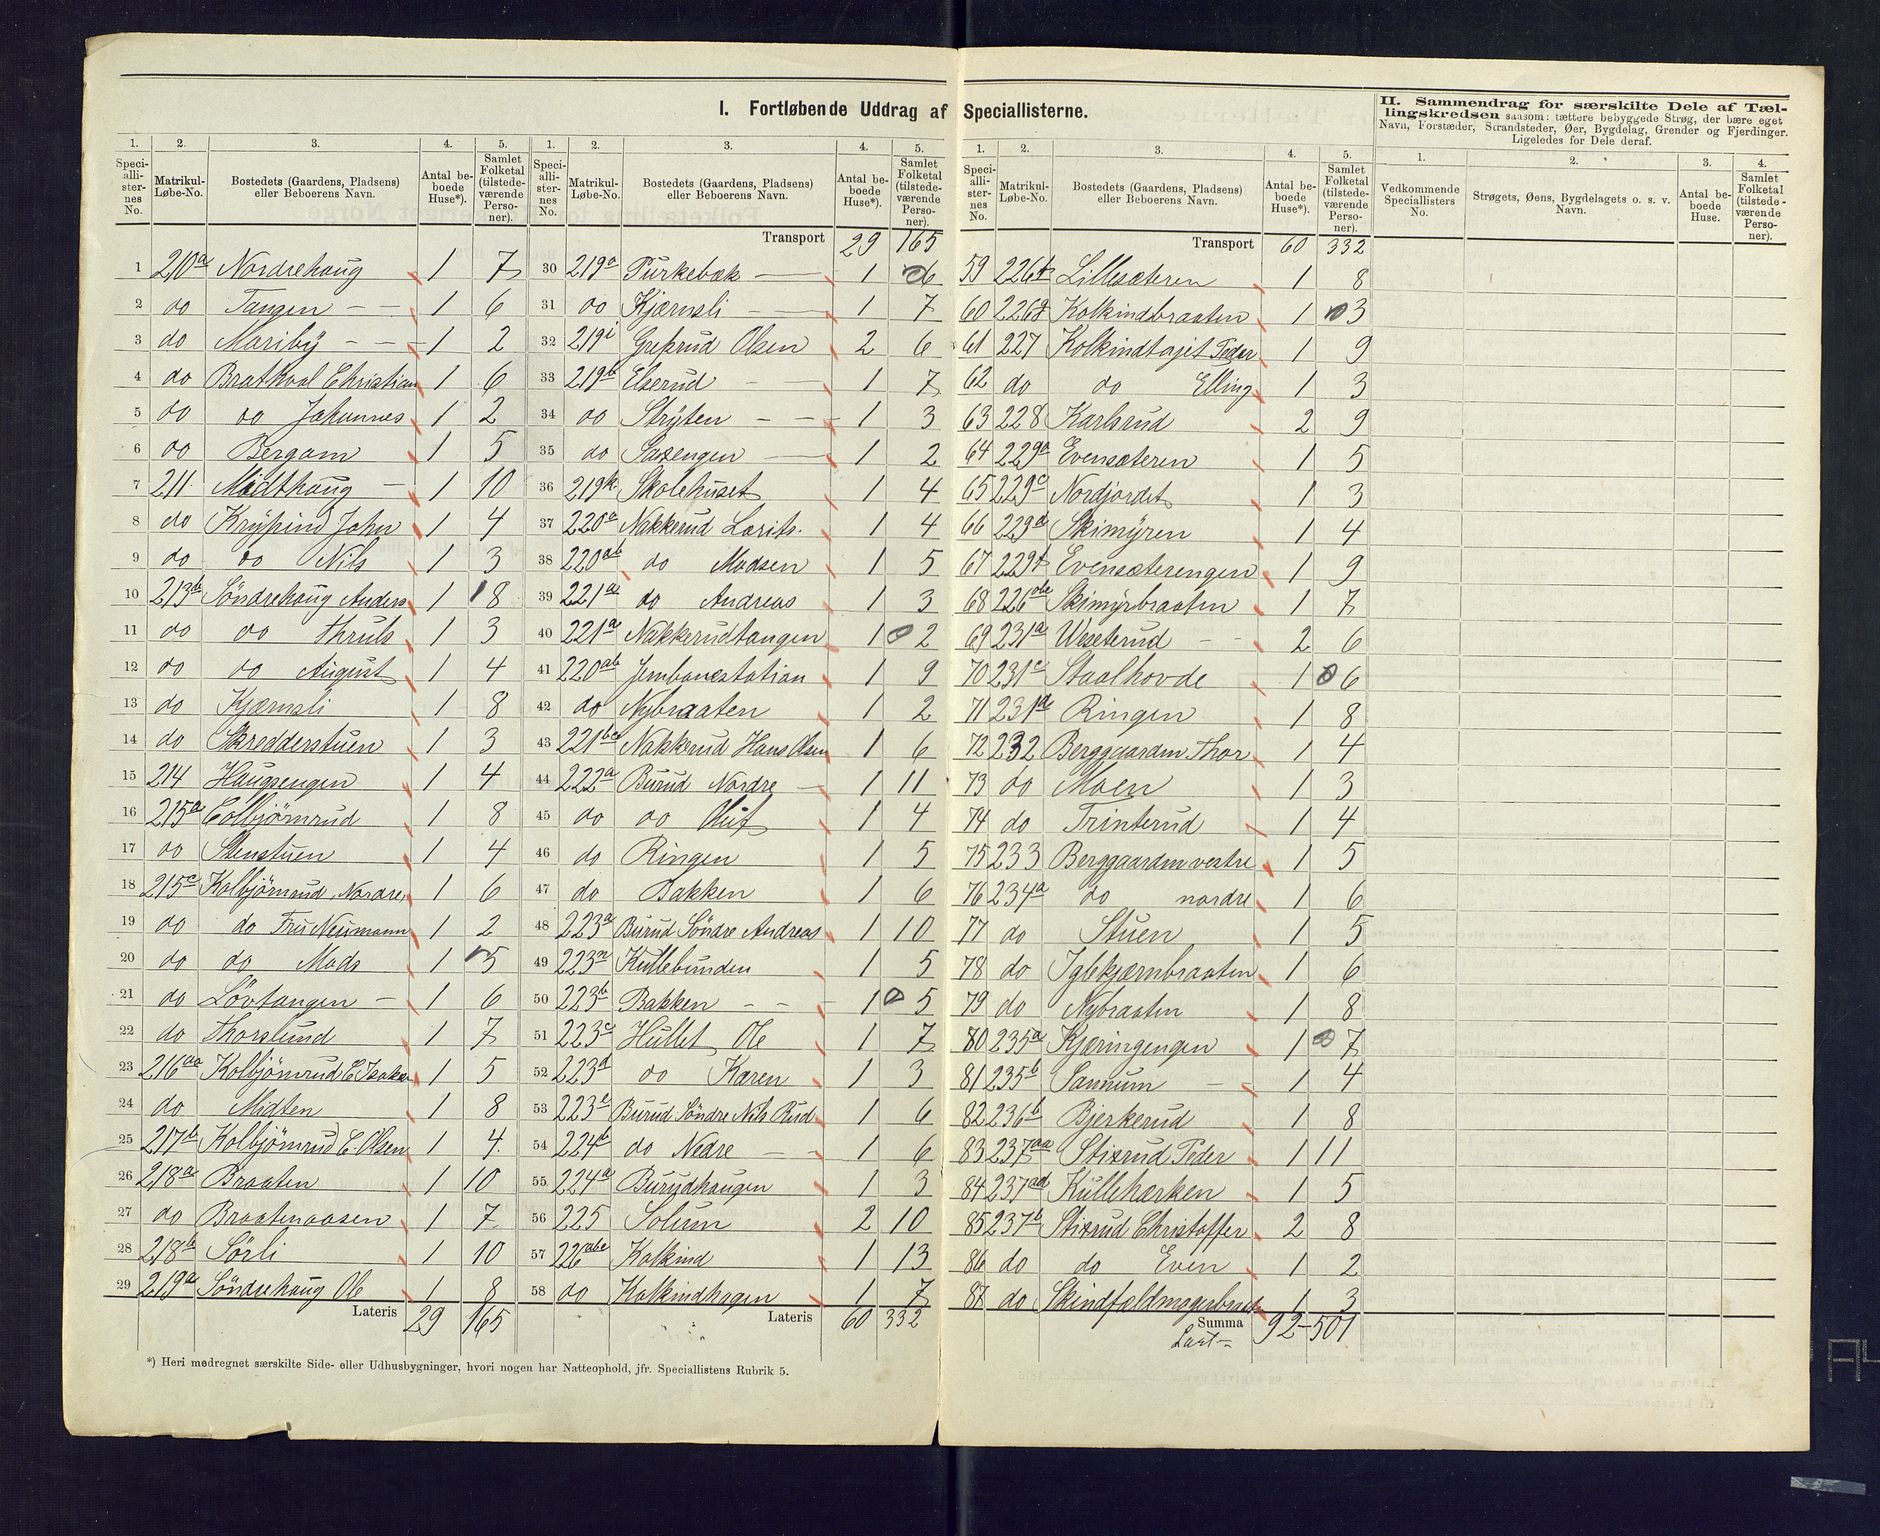 I. Fortløbende Uddrag af Speciallisterne.
II. Sammendrag for særskilte Dele af Tællingskredsen saasom: tættere bebyggede Strøg, der bære eget Navn, Forstæder, Strandsteder, Øer, Bygdelag, Grender og Fjerdinger. Ligeledes for Dele deraf.
1. 2. 3. 4. 5. 1. 2. 3. 4. 5. 1. 2. 3. 4. 5. 1. 2. 3. 4.
Speciallisternes No. Matrikul-Løbe-No. Bostedets (Gaardens, Pladsens) eller Beboerens Navn. Antal beboede Huse*). Samlet Folketal (tilstedeværende Personer).
Speciallisternes No. Matrikul-Løbe-No. Bostedets (Gaardens, Pladsens) eller Beboerens Navn. Antal beboede Huse*). Samlet Folketal (tilstedeværende Personer).
Speciallisternes No. Matrikul-Løbe-No. Bostedets (Gaardens, Pladsens) eller Beboerens Navn. Antal beboede Huse*). Samlet Folketal (tilstedeværende Personer).
Vedkommende Speciallisters No. Strøgets, Øens, Bygdelagets o. s. v. Navn. Antal beboede Huse. Samlet Folketal (tilstedeværende Personer).
1 210a Nordrehaug 1 7
2 do Tangen 1 6
3 do Mariby 1 2
4 do Bratkval Christian 1 6
5 do do Johannes 1 2
6 do Bergam 1 5
7 211 Midthaug 1 10
8 do Kryspind John 1 4
9 do do Nils 1 3
10 213b Söndrehaug Anders 1 8
11 do do Thruls 1 3
12 do do August 1 4
13 do Kjærnsli 1 8
14 do Skredderstuen 1 3
15 214 Haugsengen 1 4
16 215a Colbjörnrud 1 8
17 do Stenstuen 1 4
18 215c Kolbjörnrud, Nordre 1 6
19 do do Fru Neumann 1 2
20 do do Mads 1 5
21 do Lövtangen 1 6
22 do Thorslund 1 7
23 216aa Kolbjörnrud E. Isaks 1 5
24 do Midten 1 8
25 217b Kolbjörnrud E. Olsen 1 4
26 218a Braaten 1 10
27 do Braatenaasen 1 7
28 218b Sörli 1 10
29 219a Söndrehaug Ole 1 8
Lateris 29 165
Transport 29 165
30 219a Purkebæk 1 6
31 do Kjærnsli 1 7
32 219i Grøsrud Olsen 2 6
33 219b Elserud 1 7
34 do Stryten 1 3
35 do Saxengen 1 2
36 219k Skolehuset 1 4
37 220a Nakkerud Larits. 1 4
38 220ab do Madsen 1 5
39 221a do Andreas 1 3
40 221a Nakkerudtangen 1 2
41 220ab Jernbanestation 1 9
42 do Nybraaten 1 2
43 221bc Nakkerud Hans Olsen 1 6
44 222a Burud Nordre 1 11
45 do do Oluf 1 4
46 do Ringen 1 5
47 do Bakken 1 6
48 223a Burud Söndre Andreas 1 10
49 223n Kullebunden 1 5
50 223b Bakken 1 5
51 223c Hullet, Ole 1 7
52 223d do Karen 1 3
53 223e Burud Söndre Nils Rud 1 6
54 224b do Nedre 1 6
55 224a Burudhaugen 1 3
56 225 Solum 2 10
57 226abc Kolkind 1 13
58 do Kolkindhagen 1 7
Lateris 60 332
Transport 60 332
59 226 Lillesæteren 1 8
60 226 Kolkindbraaten 1 3
61 227 Kolkindtajet Peder 1 9
62 do do Elling 1 3
63 228 Karlsrud 2 9
64 229a Evensæteren 1 5
65 229c Nordjordet 1 3
66 229d Skimyren 1 4
67 229 Evensæterengen 1 9
68 226 Skimyrbraaten 1 7
69 231a Weseterud 2 6
70 231c Staalhovde 1 6
71 231 Ringen 1 8
72 232 Berggaarden Thor 1 4
73 do Moen 1 3
74 do Trinterud 1 4
75 233 Berggaarden vestre 1 5
76 234a do nordre 1 6
77 do Stuen 1 5
78 do Iglekjærnbraaten 1 6
79 do Nybraaten 1 8
80 235a Kjæringengen 1 7
81 235b Sannum 1 4
82 236b Bjerkerud 1 8
83 237aa Stixrud Peder 1 11
84 237ad Kullehærken 1 5
85 237b Stixrud Christoffer 2 8
86 do do Even 1 2
87 do Skindfældmagerbraat 1 3
Summa 92 – 501
*) Heri medregnet særskilte Side- eller Udhusbygninger, hvori nogen har Natteophold, jfr. Speciallistens Rubrik 5.